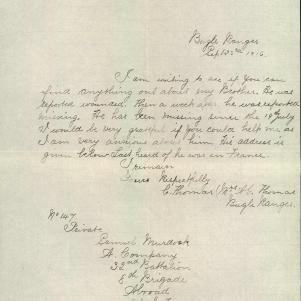 Bugle Ranges
Sept 23rd 1916.
I am writing to see if you can
find anything out about my Brother. He was
reported wounded. Then a week after he was reported
missing. He has been missing since the 19th July
I would be very grateful if you could help me as
I am very anxious about him. His address is
given below Last heard of he was in France.
I remain
Yours Respectfully
C. Thomas (Mrs A C Thomas
Bugle Ranges.
No 147
Private
Samuel Murdock
A. Company
32nd Battalion
8th Brigade
Abroad